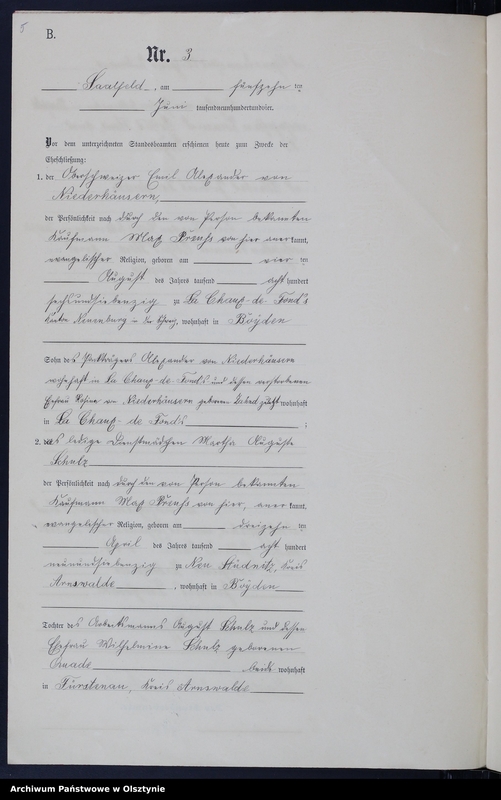 5
B.
Nr. 3
Saalfeld, am fünfzehn ten
Juni tausendneunhundertundvier.
Vor dem unterzeichneten Standesbeamten erschienen heute zum Zwecke der
Eheschließung:
1. der Oberschweizer Emil Alexander von
Niederhäusern,
der Persönlichkeit nach durch den von Person bekannten
Kaufmann Max Preuß von hier aner kannt,
evangelischer Religion, geboren am vier ten
August des Jahres tausend acht hundert
sechsundsiebenzig zu La Chaux-de-Fonds
Kanton Neuenburg in der Schweiz, wohnhaft in Böyden
Sohn des Alexander von Niederhäusern
wohnhaft in La Chaux-de-Fonds und dessen verstorbenen
Ehefrau von Niederhäusern geborenen wohnhaft
in La Chaux-de-Fonds ;
2. das ledige Dienstmädchen Martha Auguste
Schulz
der Persönlichkeit nach durch den von Person bekannten
Kaufmann Max Preuß von hier, aner kannt,
evangelischer Religion, geboren am dreizehn ten
April des Jahres tausend acht hundert
neunundsiebenzig zu Neu Stüdnitz, Kreis
Arnswalde, wohnhaft in Böyden
Tochter des Arbeitsmanns August Schulz und dessen
Ehefrau Wilhelmine Schulz geborenen
beide wohnhaft
in Fürstenau, Kreis Arnswalde
Archiwum Państwowe w Olsztynie